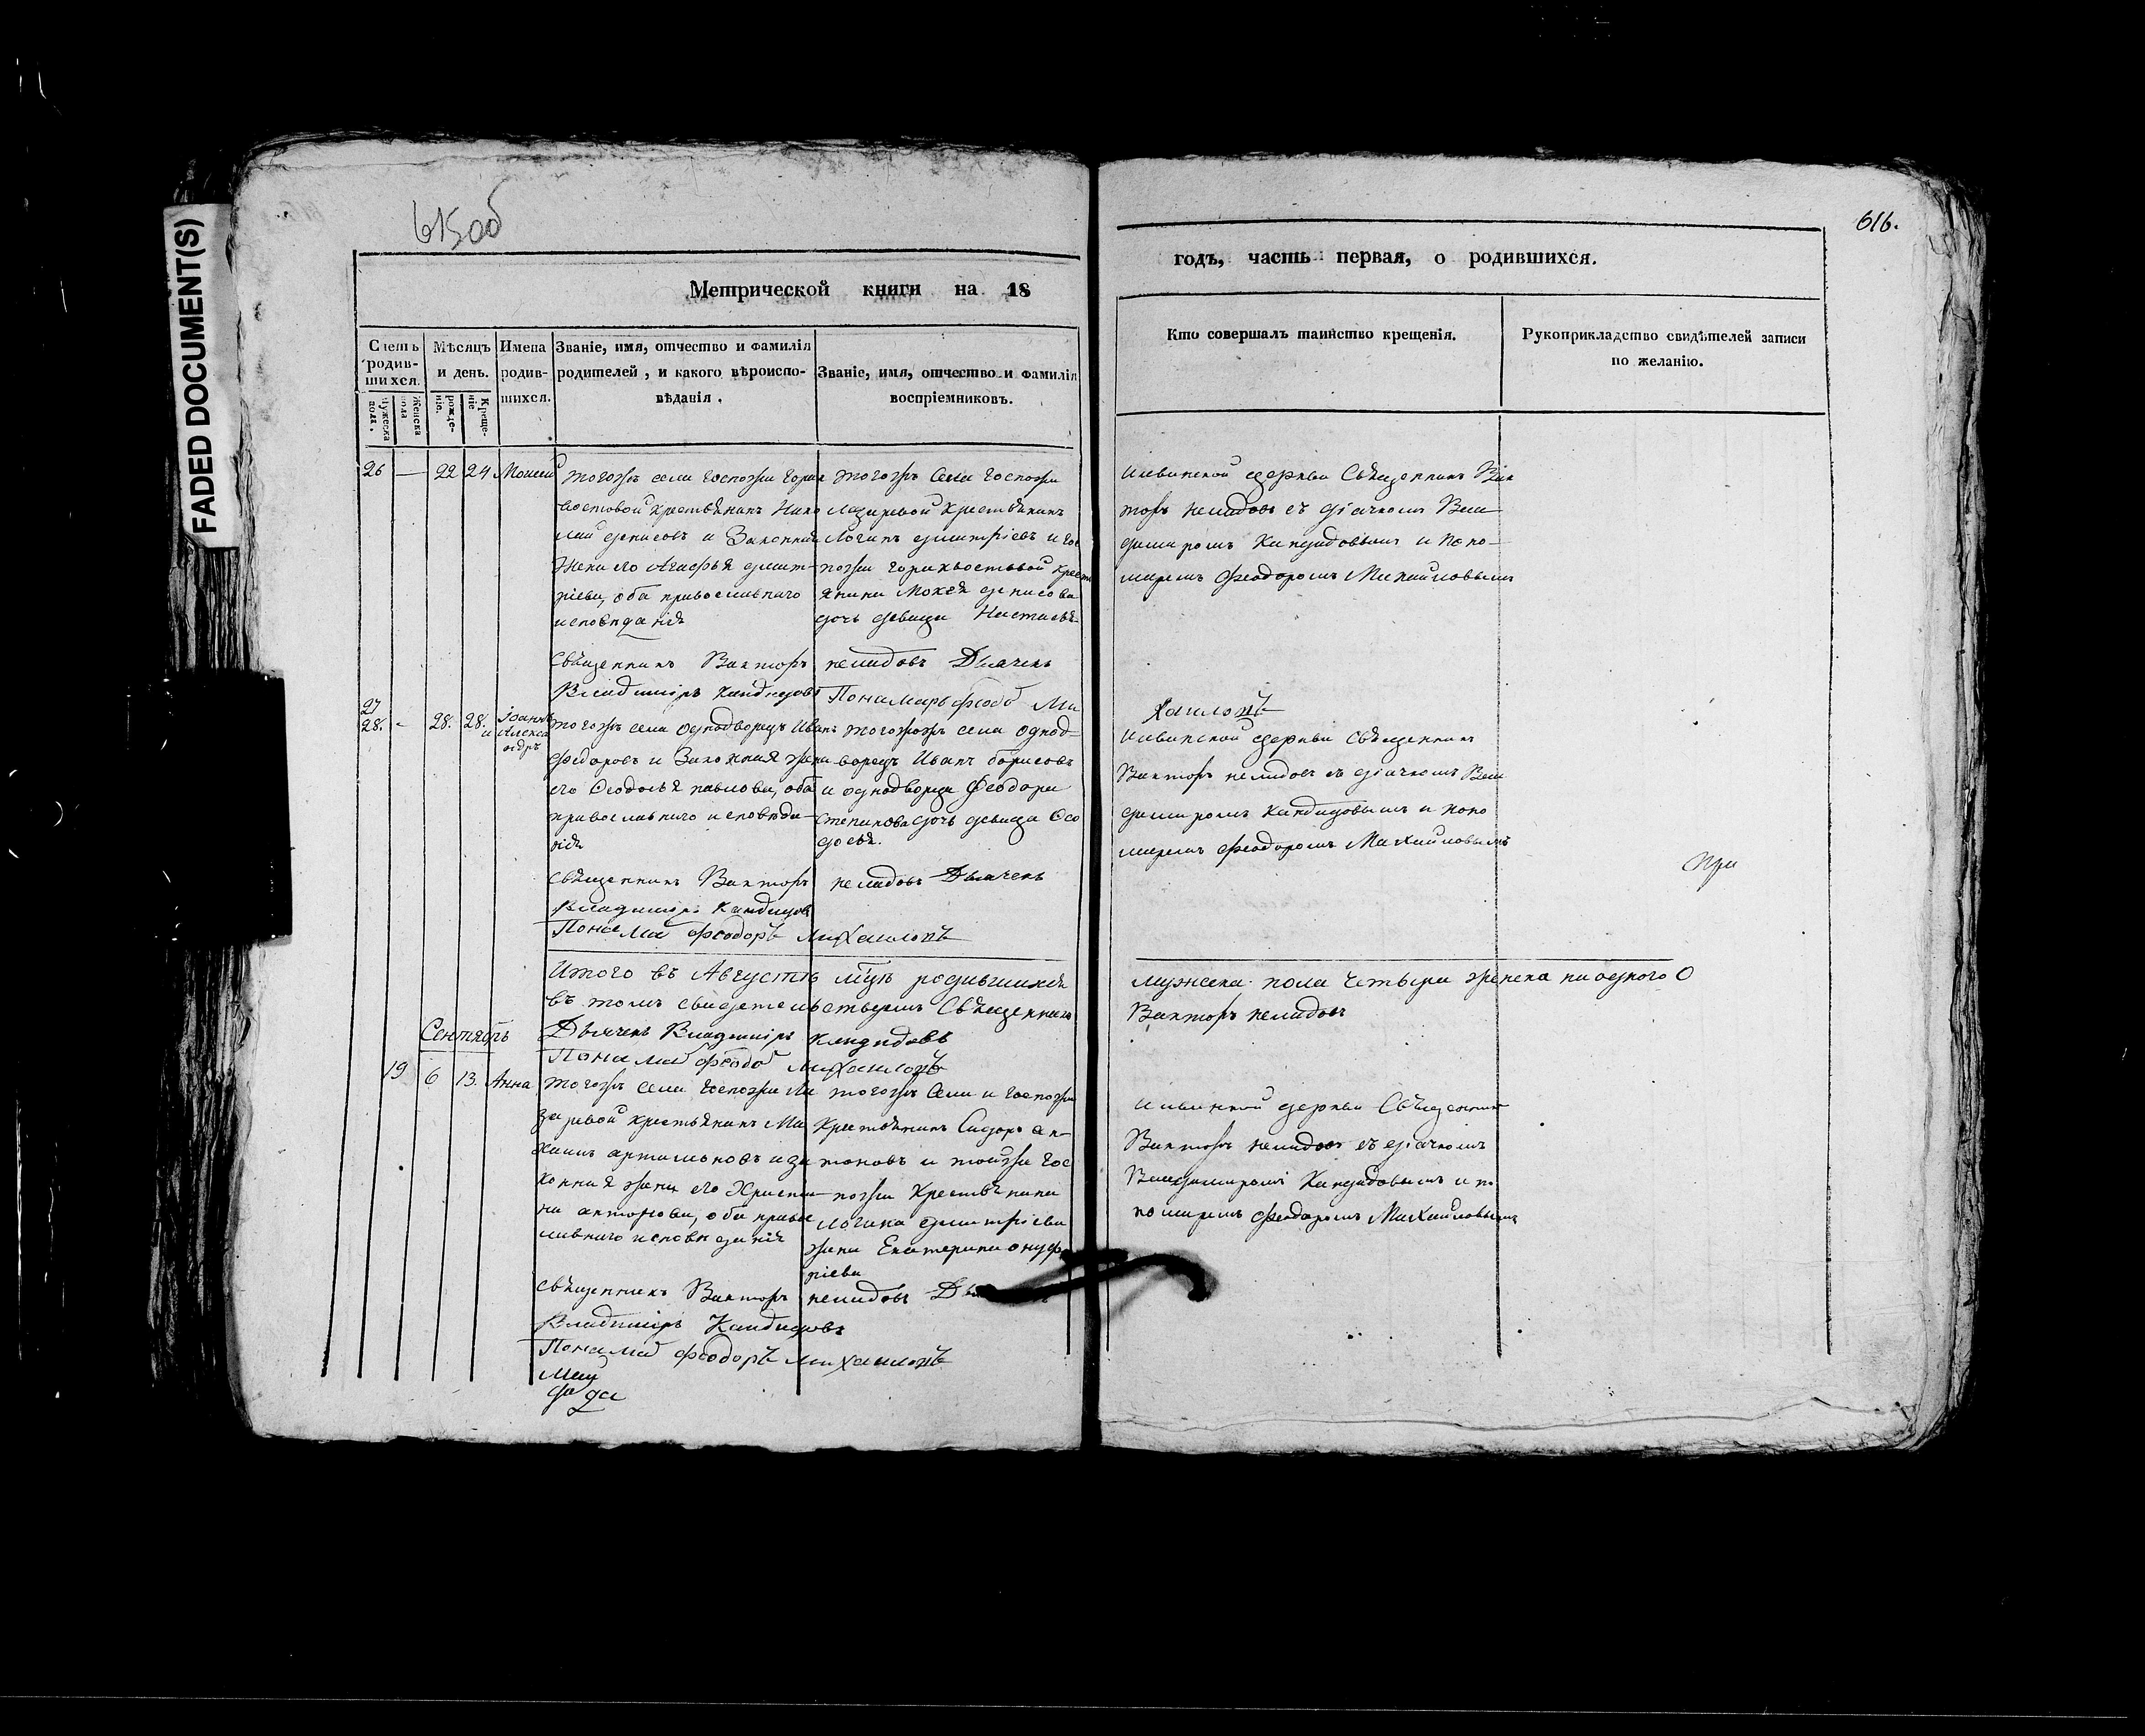 FADED DOCUMENT(S)
615об
616.
Метрической книги на 18
годъ, часть первая, о родившихся.
Счетъ родившихся.
Мѣсяцъ и день.
Имена родившихся.
Званіе, имя, отчество и фамилія родителей, и какого вѣроисповѣданія.
Званіе, имя, отчество и фамилія воспріемниковъ.
Кто совершалъ таинство крещенія.
Рукоприкладство свидѣтелей записи по желанію.
Мужеска пола.
Женска пола
рожденіе.
Крещеніе
26 — 22 24 Моисей
тогожъ села Госпожи Горих
востовой крестьянинъ Нико
лай денисовъ и Законная
Жена его Агафья дмит-
ріева, оба православнаго
исповѣданія
тогожъ Села Госпожи
Лазаревой Крестьянинъ
Логинъ дмитріевъ и гос
пожи горихвостовой крест
янина Мокея денисова
дочь девица Настасья
церкви Священникъ Вик
торъ нелидовъ съ дьячкомъ Вла
димиромъ Кандидовымъ и поно-
маремъ Феодоромъ Михайловымъ
Священникъ Викторъ нелидовъ Дьячекъ
Владиміръ Кандидовъ Понамарь Феодо Ми
хаиловъ
27
28. - 28. 28. Іоаннъ
и Алекса
ндръ
тогожъ села однодворецъ Иванъ
Федоровъ и Законная жена
его Феодосья павлова, оба
православнаго исповѣда-
нія
тогожъ села однод-
ворецъ Иванъ борисовъ
и однодворца Феодора
степанова дочь девица Фео
досья.
церкви священникъ
Викторъ нелидовъ съ дьячкомъ Вла
димиромъ Кандидовымъ и поно
маремъ Феодоромъ Михайловымъ
При
священникъ Викторъ нелидовъ Дьячекъ
Владиміръ Кандидовъ
Понама Феодоръ Михаиловъ
Итого въ Августѣ мцѣ родившихся мужеска пола четыри женска ни одного 0
въ томъ свидетельствуемъ Священникъ Викторъ нелидовъ
Дьячекъ Владиміръ Кандидовъ
Понама Феодо Михаиловъ
Сентябрь
19 6 13. Анна
тогожъ села Госпожи Ла
заревой крестьянинъ Ми
хаилъ артамоновъ и за
конная жена его Христи-
на антонова, оба право
славнаго исповѣданія
тогожъ Села и Госпожи
Крестьянинъ Сидоръ ан-
тоновъ и тойжи Гос
пожи Крестьянина
Логина дмитріева
жена Екатерина онуф
ріева
церкви Священникъ
Викторъ нелидовъ съ дьячкомъ
Владимиромъ Кандидовымъ и по
номаремъ Феодоромъ Михайловымъ
священникъ Викторъ нелидовъ
Владиміръ Кандидовъ
Понама Феодоръ Михаиловъ